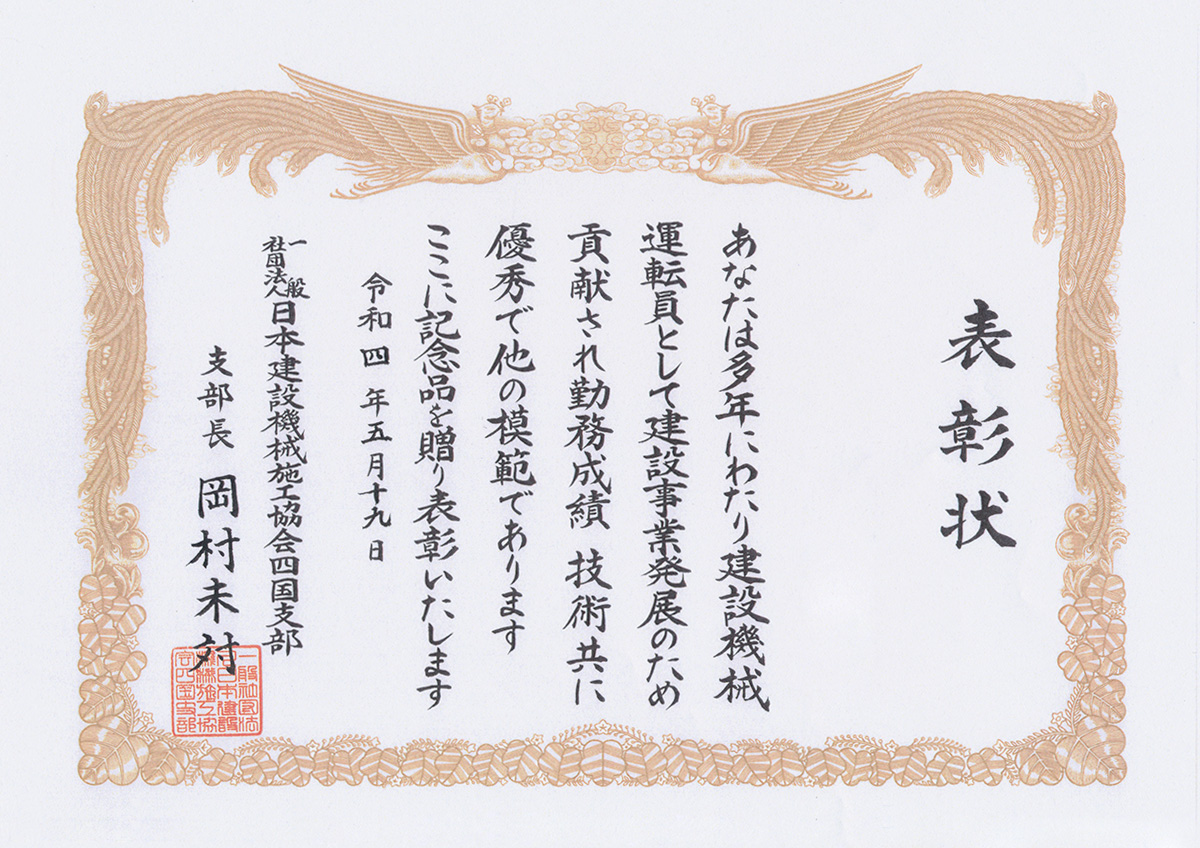 表彰状
あなたは多年にわたり建設機械
運転員として建設事業発展のため
貢献され勤務成績 技術共に
優秀で他の模範であります
ここに記念品を贈り表彰いたします
令和四年五月十九日
一般社団法人日本建設機械施工協会四国支部
支部長 岡村未対
一般社団法
人日本建設
機械施工協
会四国支部